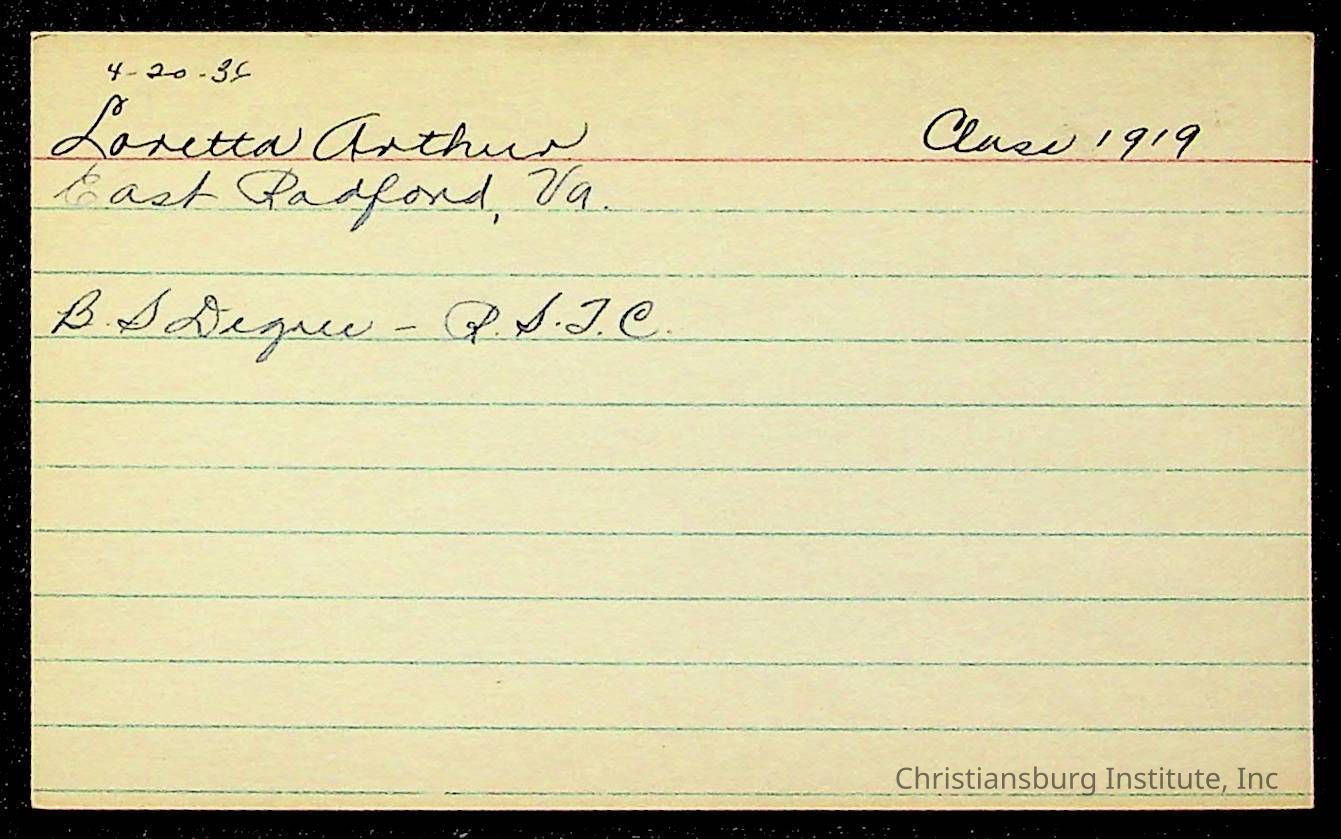 4-20-36
Loretta Arthur Class 1919
East Radford, Va.
B.S Degree - R.S.T.C.
Christiansburg Institute, Inc